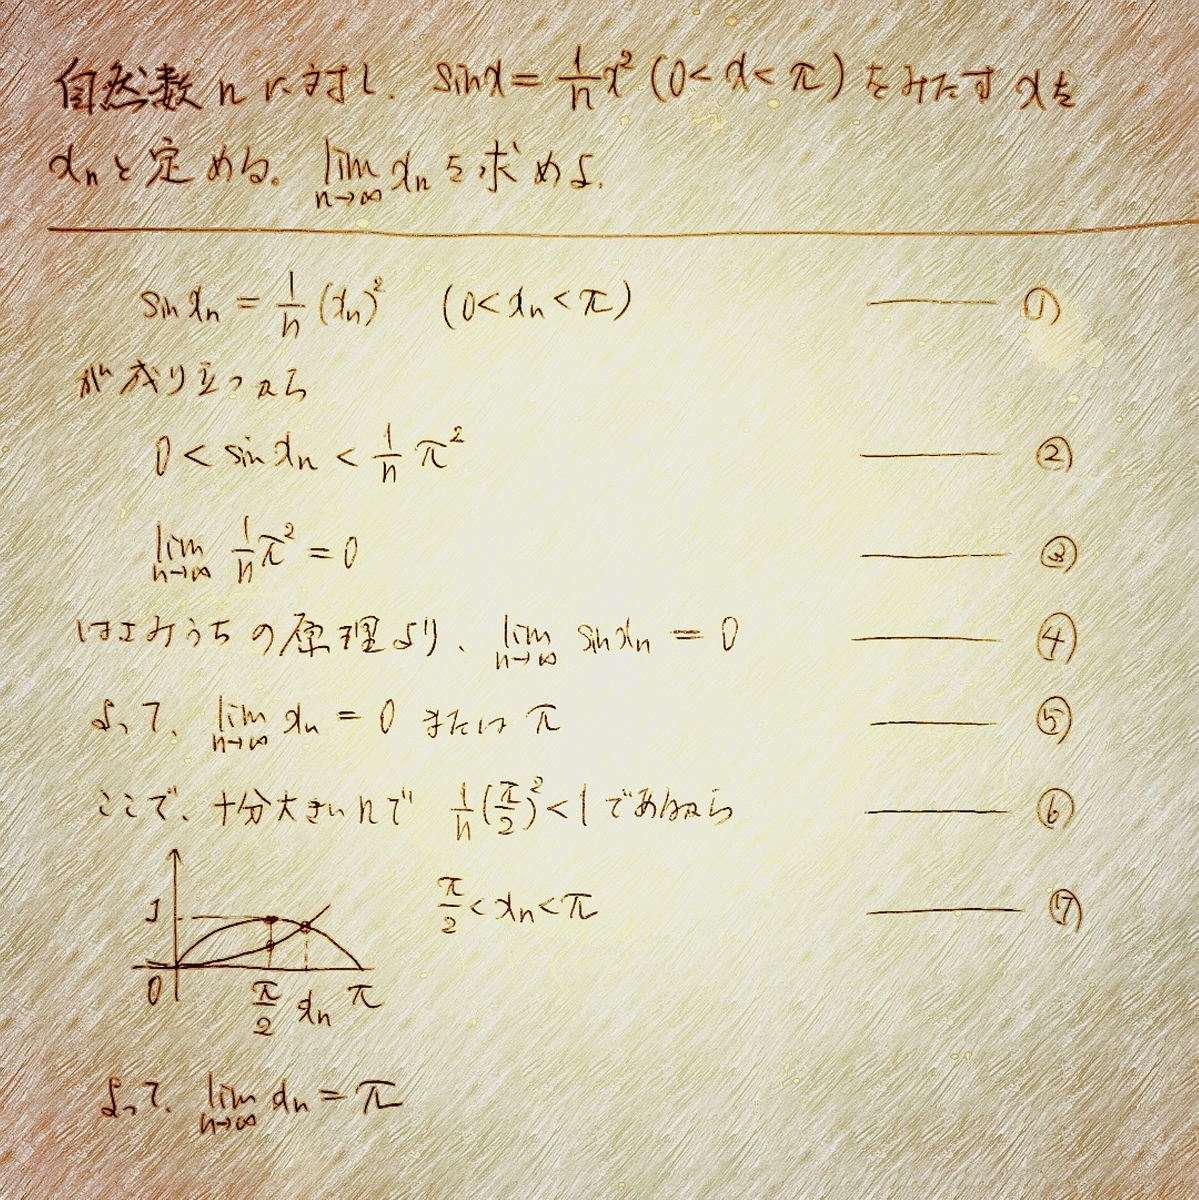 自然数 n に対し、sinx = 1/n x² (0 < x < π) をみたす xを
xnと定める。lim n→∞ xn を求めよ.
sin xn = 1/n (xn)² (0 < xn < π) ①
が成り立つから
0 < sin xn < 1/n π² ②
lim n→∞ 1/n π² = 0 ③
はさみうちの原理より、lim n→∞ sin xn = 0 ④
よって、lim n→∞ xn = 0 または π ⑤
ここで、十分大きいnで 1/n (π/2)² < 1 であるから ⑥
π/2 < xn < π ⑦
1
0 π/2 xn π
よって、lim n→∞ xn = π